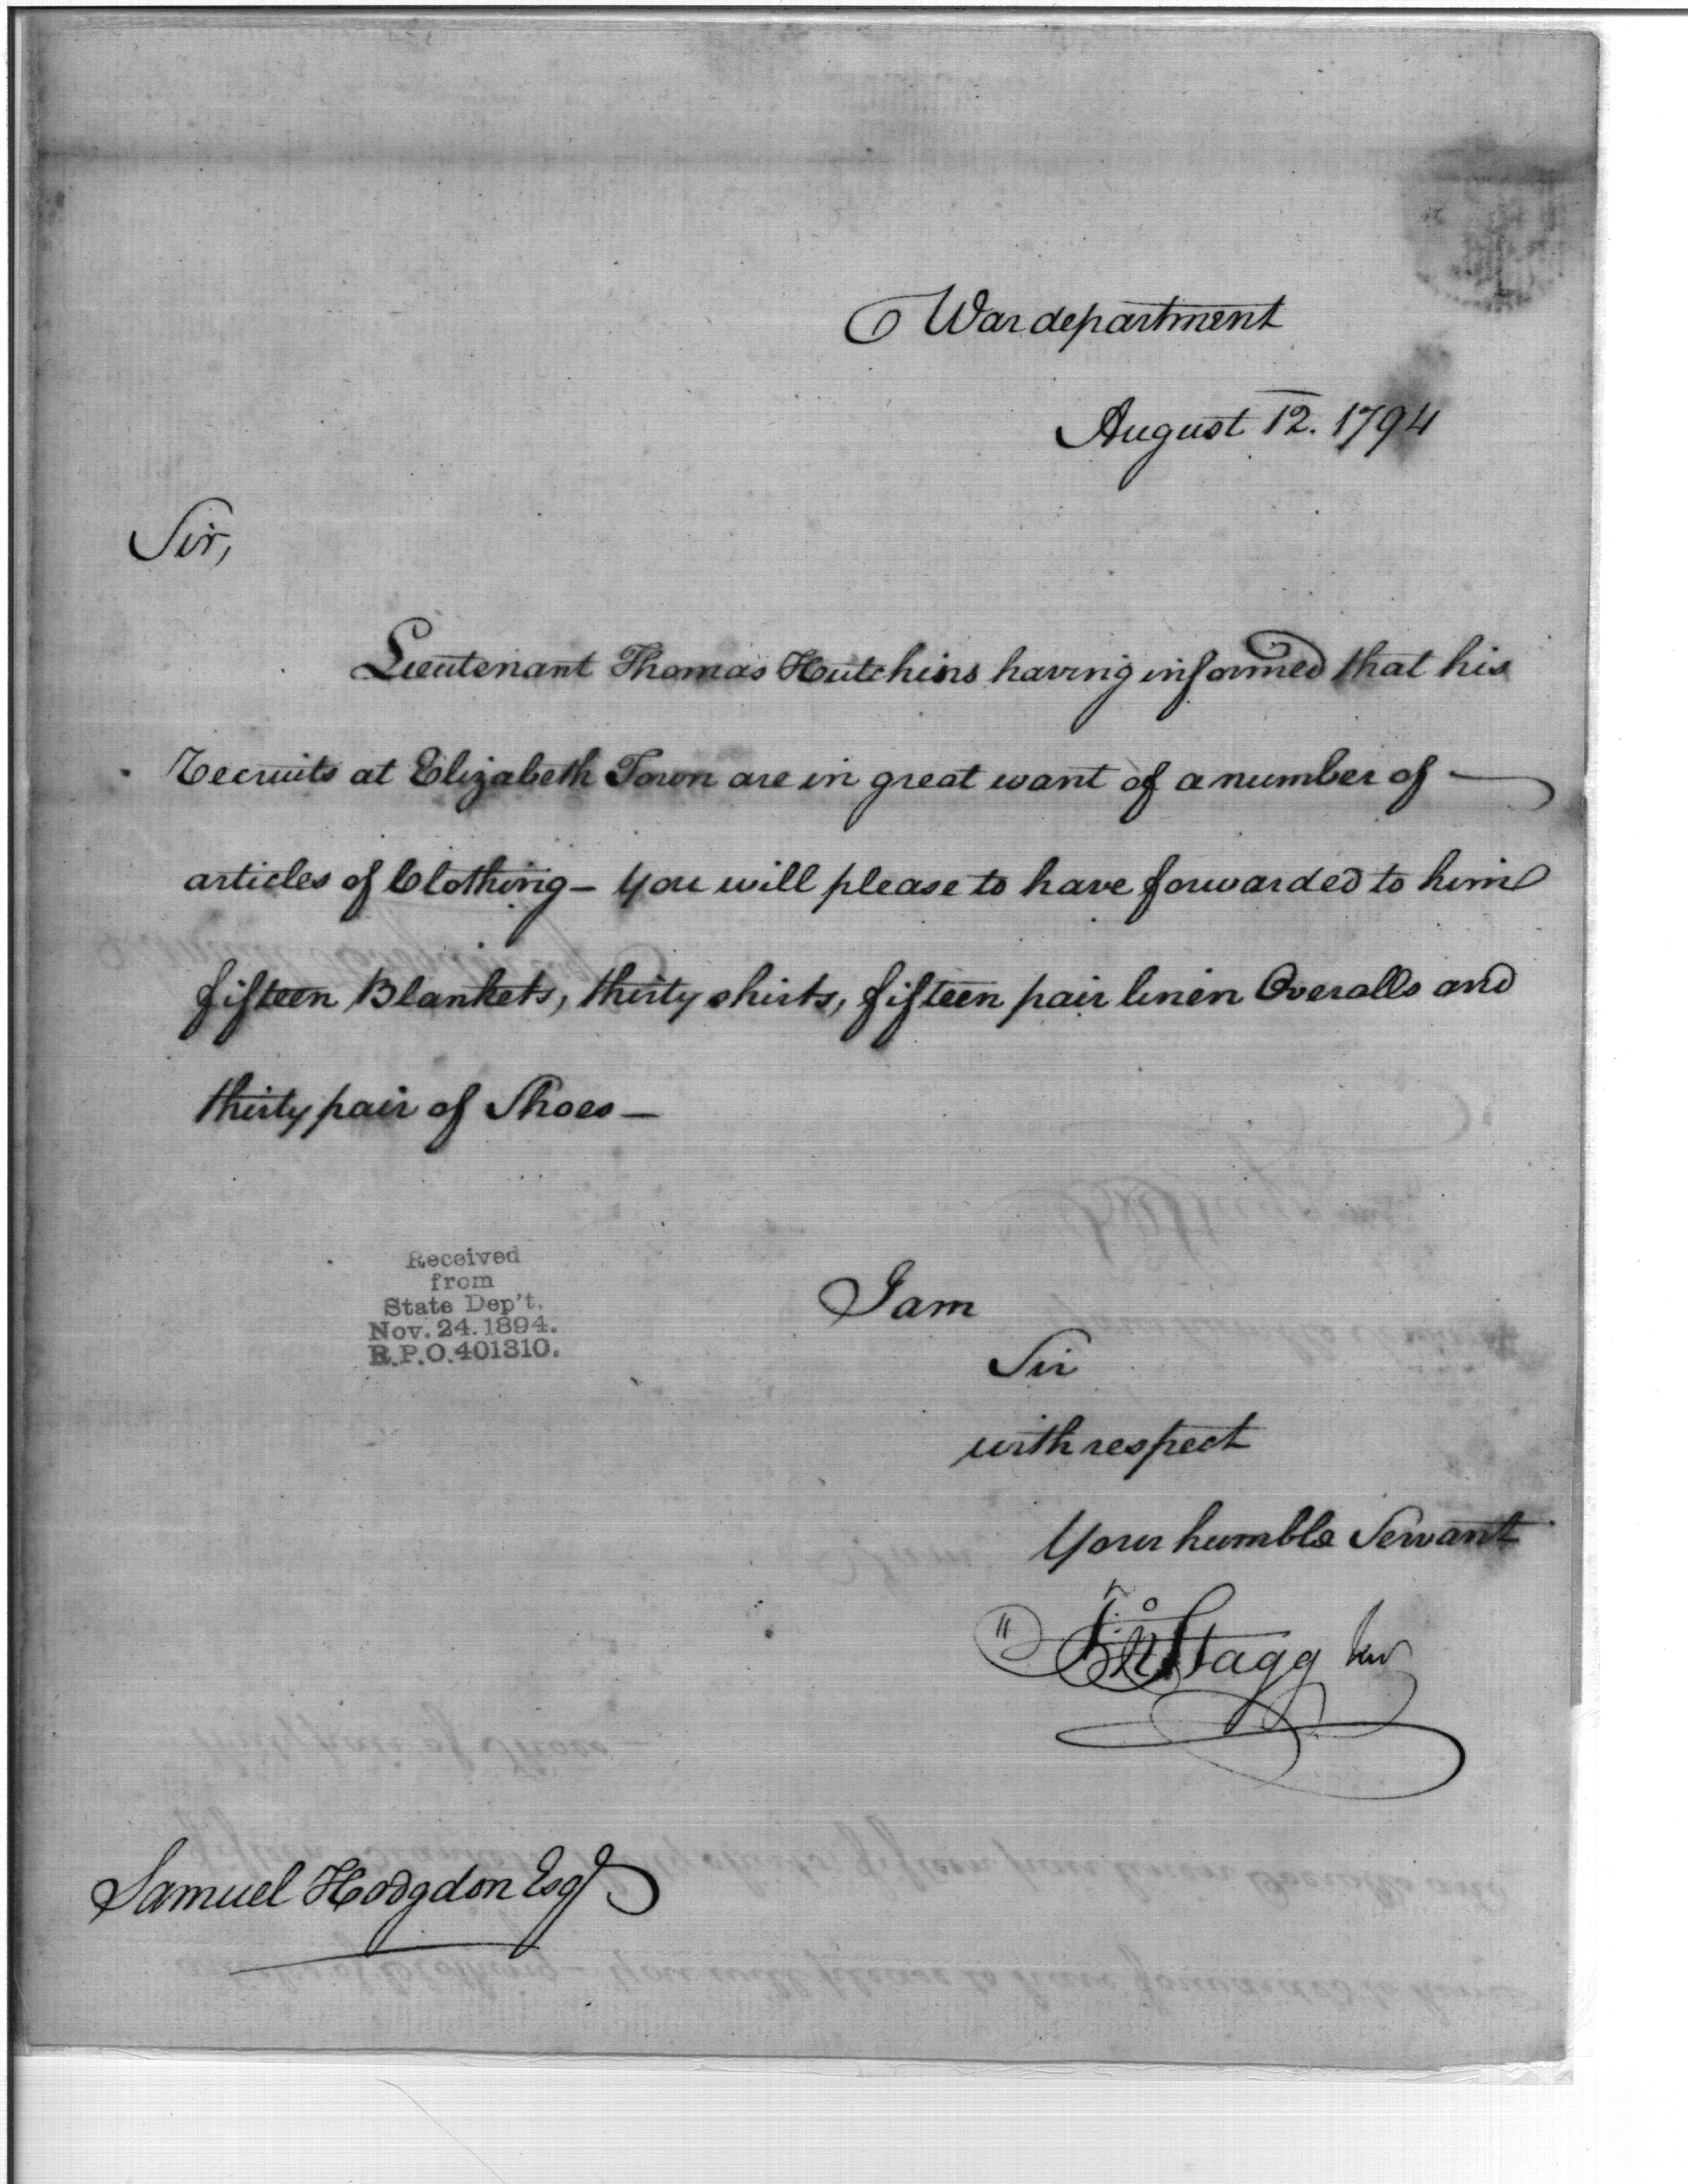 War department
August 12. 1794
Sir,
Lieutenant Thomas Hutchins having informed that his
recruits at Elizabeth Town are in great want of a number of —
articles of Clothing — you will please to have forwarded to him
fifteen Blankets, thirty shirts, fifteen pair linen Overalls and
thirty pair of Shoes —
Received
from
State Dep't.
Nov. 24. 1894.
R.P.O. 401310.
I am
Sir
with respect
Your humble Servant
Jno Stagg Junr
Samuel Hodgdon Esqr